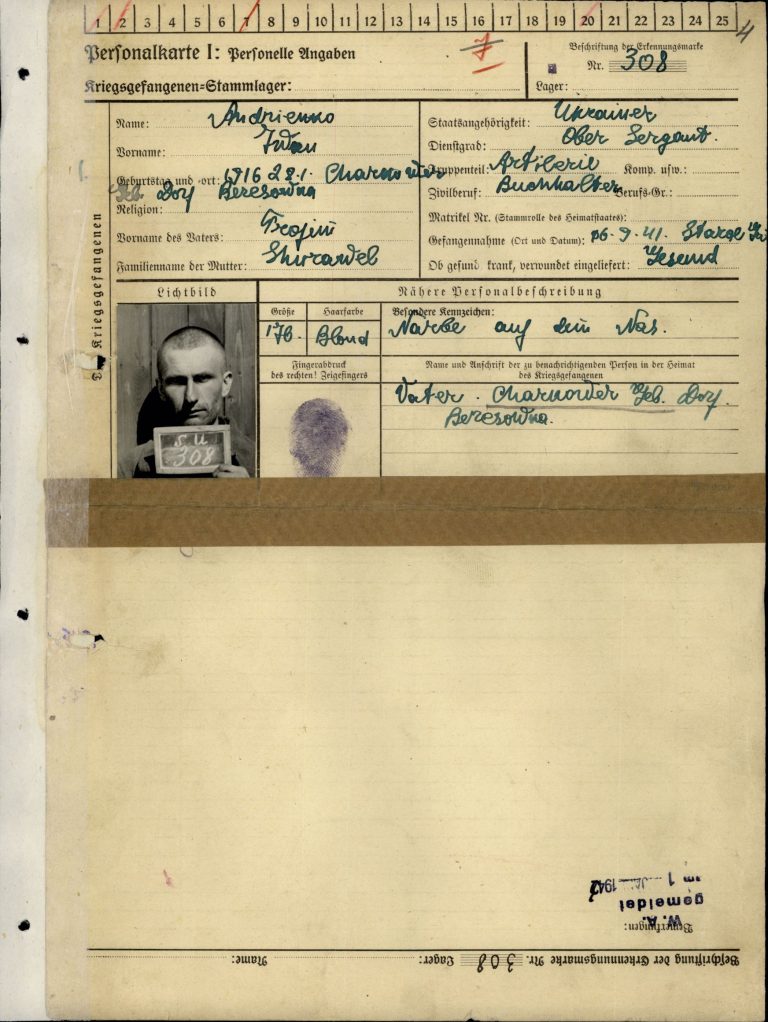 1 2 3 4 5 6 7 8 9 10 11 12 13 14 15 16 17 18 19 20 21 22 23 24 25
4
Personalkarte I: Personelle Angaben
7
Beschriftung der Erkennungsmarke
Nr. 308
Kriegsgefangenen=Stammlager:
Lager:
Des Kriegsgefangenen
Name: Andrienko
Vorname: Iwan
Geburtstag und -ort: 1916 22.1.
Geb. Dorf Beresowna
Religion:
Vorname des Vaters:
Familienname der Mutter:
Staatsangehörigkeit: Ukrainer
Dienstgrad: Ober Sergant.
Truppenteil: Artilerie Komp. usw.:
Zivilberuf: Buchhalter Berufs-Gr.:
Matrikel Nr. (Stammrolle des Heimatstaates):
Gefangennahme (Ort und Datum): 9.41.
Ob gesund, krank, verwundet eingeliefert: Gesund
Lichtbild
Nähere Personalbeschreibung
Größe
176.
Haarfarbe
Blond
Besondere Kennzeichen:
Narbe auf dem Nas.
S U
308
Fingerabdruck
des rechten! Zeigefingers
Name und Anschrift der zu benachrichtigenden Person in der Heimat
des Kriegsgefangenen
Vater. Geb. Dorf.
Beresowna.
Bemerkungen:
W. A.
gemeldet
1942
Beschriftung der Erkennungsmarke Nr. 308 Lager: Name: